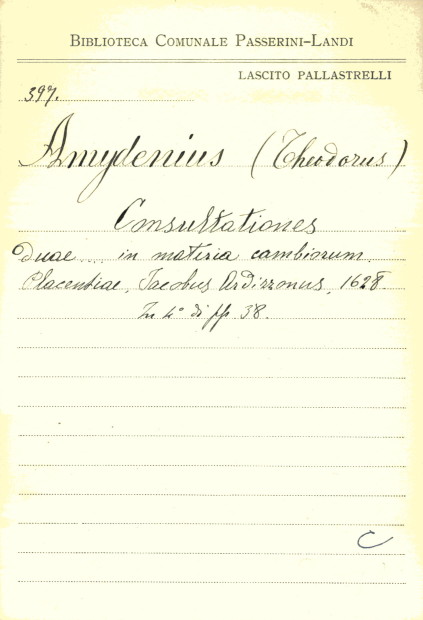 BIBLIOTECA COMUNALE PASSERINI-LANDI
LASCITO PALLASTRELLI
397.
Amydenius (Theodorus)
Consultationes
Duae .... in materia cambiorum.
Placentiae, Jacobus Ardizzonus, 1628.
In 4° di pp 38.
C